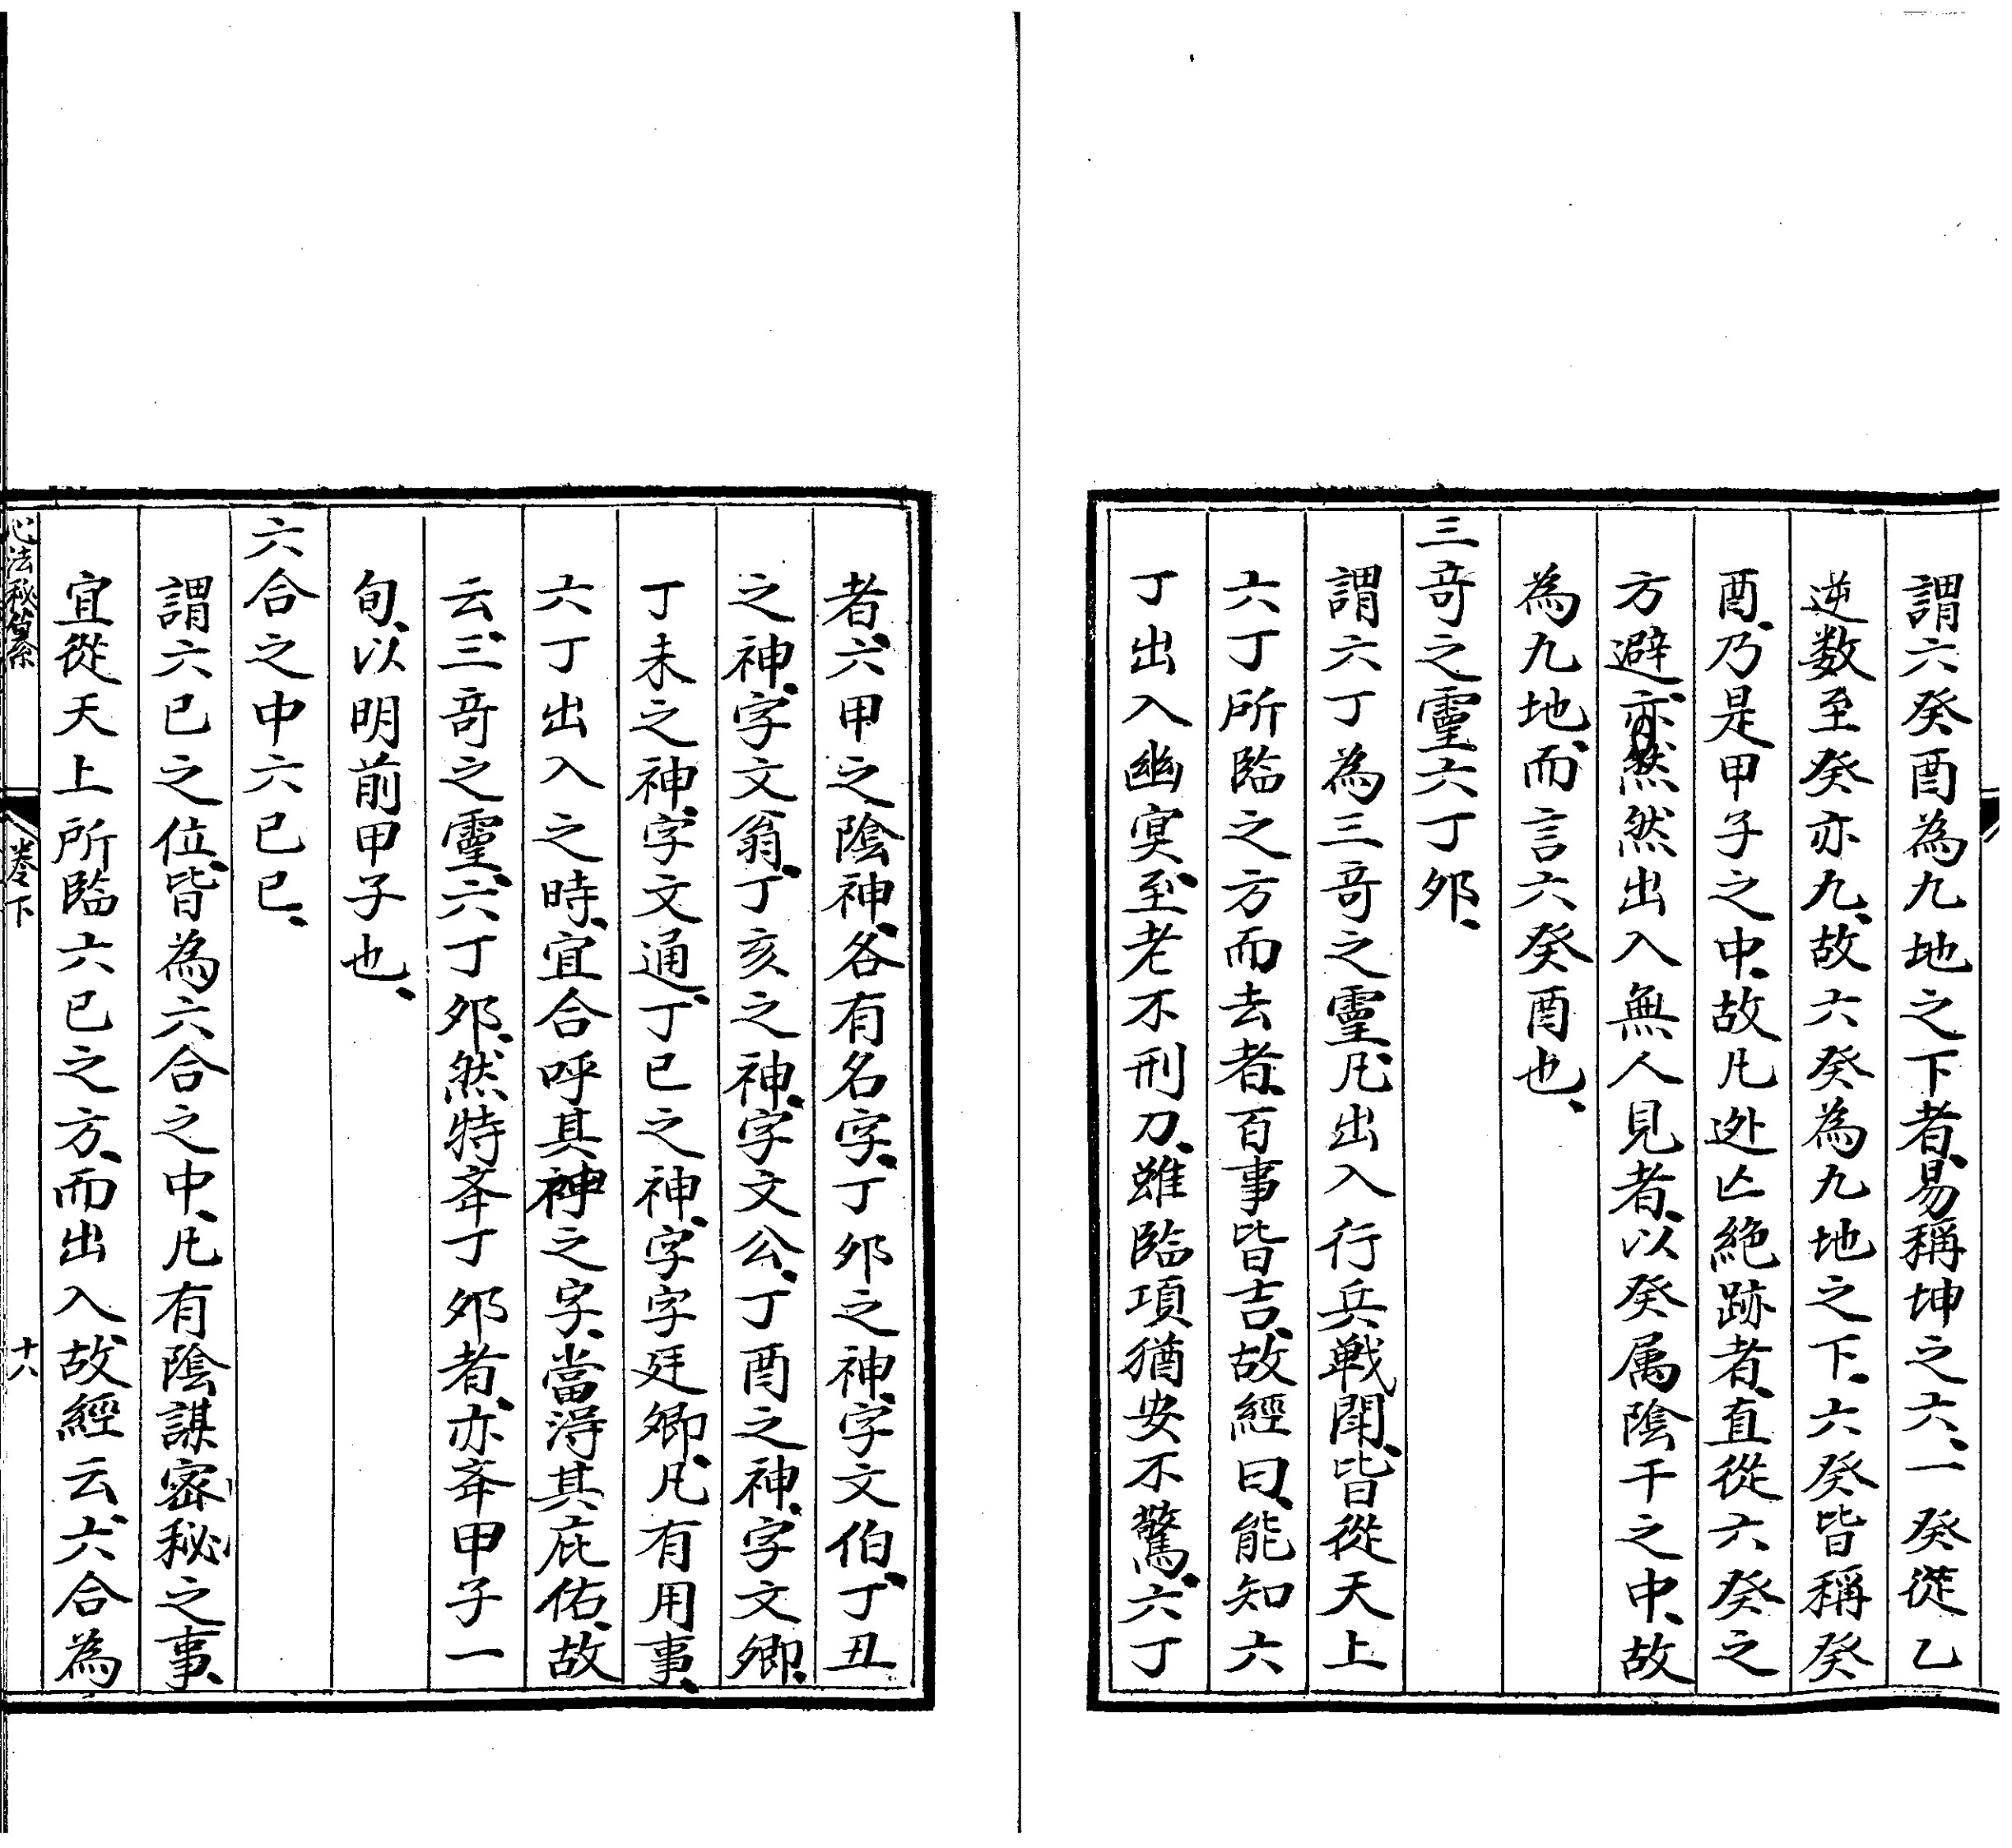 謂六癸酉為九地之下者、易稱坤之六、一癸從乙
逆数至癸亦九、故六癸為九地之下、六癸皆稱癸
酉、乃是甲子之中、故凡迯亡絶跡者、直從六癸之
方避、亦然然出入無人見者、以癸属陰干之中、故
為九地、而言六癸酉也、
三竒之靈六丁夘、
謂六丁為三竒之靈、凡出入行兵戦鬪、皆從天上
六丁所臨之方而去者、百事皆吉、故經曰、能知六
丁出入幽冥、至老不刑刀、雖臨項、猶安不驚、六丁
者、六甲之陰神、各有名字、丁夘之神、字文伯、丁丑
之神、字文翁、丁亥之神、字文公、丁酉之神、字文卿、
丁未之神、字文通、丁巳之神、字字廷卿、凡有用事、
六丁出入之時、宜合呼其神之字、當淂其庇佑、故
云、三竒之靈、六丁夘、然特夲丁夘者、亦夲甲子一
旬、以明前甲子也、
六合之中六己巳、
謂六己之位、皆為六合之中、凡有陰謀密秘之事、
宜從天上所臨六己之方、而出入、故經云、六合為
心法秘纂 卷下 十六